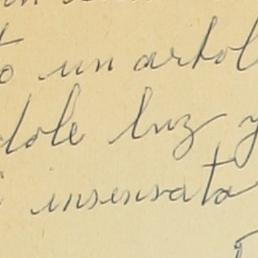 un arbol
dole luz y
insensata